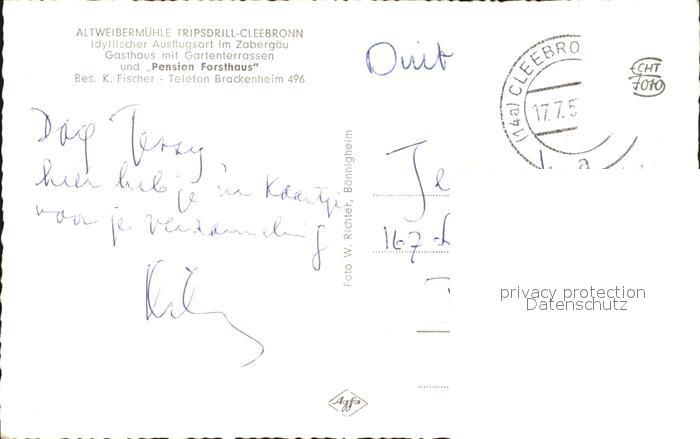 ALTWEIBERMÜHLE TRIPSDRILL-CLEEBRONN
Idyllischer Ausflugsort im Zabergäu
Gasthaus mit Gartenterrassen
und „Pension Forsthaus"
Bes. K. Fischer - Telefon Brackenheim 496
Dag
hier heb je 'n Kaartje
voor je verzameling
Foto W. Richter, Bönnigheim
Agfa
(14a) CLEEBRO
17.7.5
CHT
7010
167
privacy protection
Datenschutz